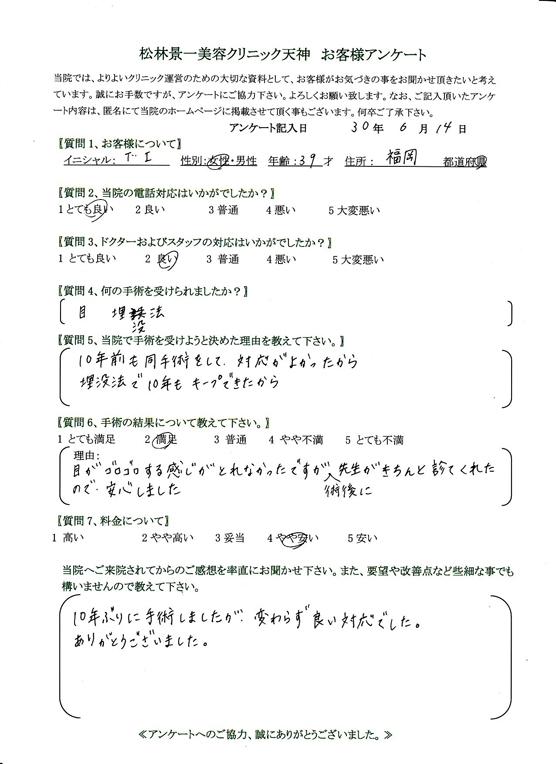 松林景一美容クリニック天神 お客様アンケート
当院では、よりよいクリニック運営のための大切な資料として、お客様がお気づきの事をお聞かせ頂きたいと考え
ています。誠にお手数ですが、アンケートにご協力下さい。よろしくお願い致します。なお、ご記入頂いたアンケ
ート内容は、匿名にて当院のホームページに掲載させて頂く事もございます。何卒ご了承下さい。
アンケート記入日 30年 6月 14日
〖質問1、お客様について〗
イニシャル: T.I 性別:女性・男性 年齢:39才 住所: 福岡 都道府県
〖質問2、当院の電話対応はいかがでしたか?〗
1とても良い 2良い 3普通 4悪い 5大変悪い
〖質問3、ドクターおよびスタッフの対応はいかがでしたか?〗
1 とても良い 2 良い 3 普通 4悪い 5大変悪い
〖質問4、何の手術を受けられましたか?〗
目 埋没法
〖質問5、当院で手術を受けようと決めた理由を教えて下さい。〗
10年前も同手術をして、対応がよかったから
埋没法で10年もキープできたから
〖質問6、手術の結果について教えて下さい。〗
1とても満足 2満足 3 普通 4やや不満 5とても不満
理由:
目がゴロゴロする感じがとれなかったですが 先生がきちんと診てくれた
ので、安心しました 術後に
〖質問7、料金について〗
1 高い 2やや高い 3妥当 4やや安い 5安い
当院へご来院されてからのご感想を率直にお聞かせ下さい。また、要望や改善点など些細な事でも
構いませんので教えて下さい。
10年ぶりに手術しましたが、変わらず良い対応でした。
ありがとうございました。
≪アンケートへのご協力、誠にありがとうございました。≫